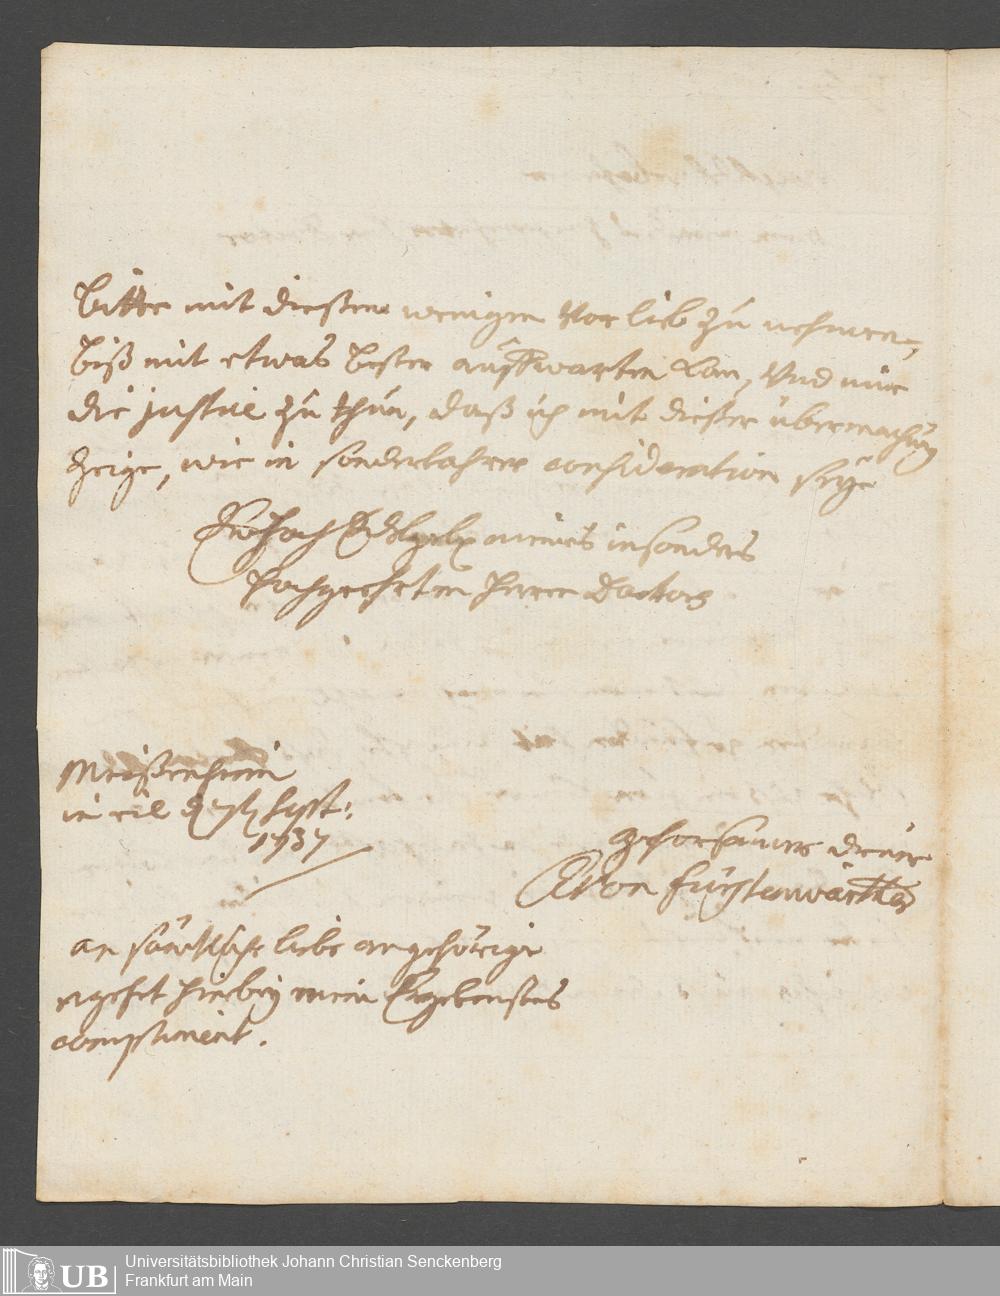 bitte mit diesem wenigen vor lieb zu nehmen,
biß mit etwas besser auffwarten kan, Und mir
die justice zu thun, daß ich mit dieser übermachung
zeige, wie in sonderbahrer consideration seye
Ew Hoch Edelgeb meines insonders
hochgeehrten Herrn Doctors
Meißenheim
in eil d 7t Sept:
1737
gehorsamer diener
Von Fürstenwärther
an sämtliche liebe angehörige
ergehet hierbey mein Ergebenstes
compliment.
UB
Universitätsbibliothek Johann Christian Senckenberg
Frankfurt am Main